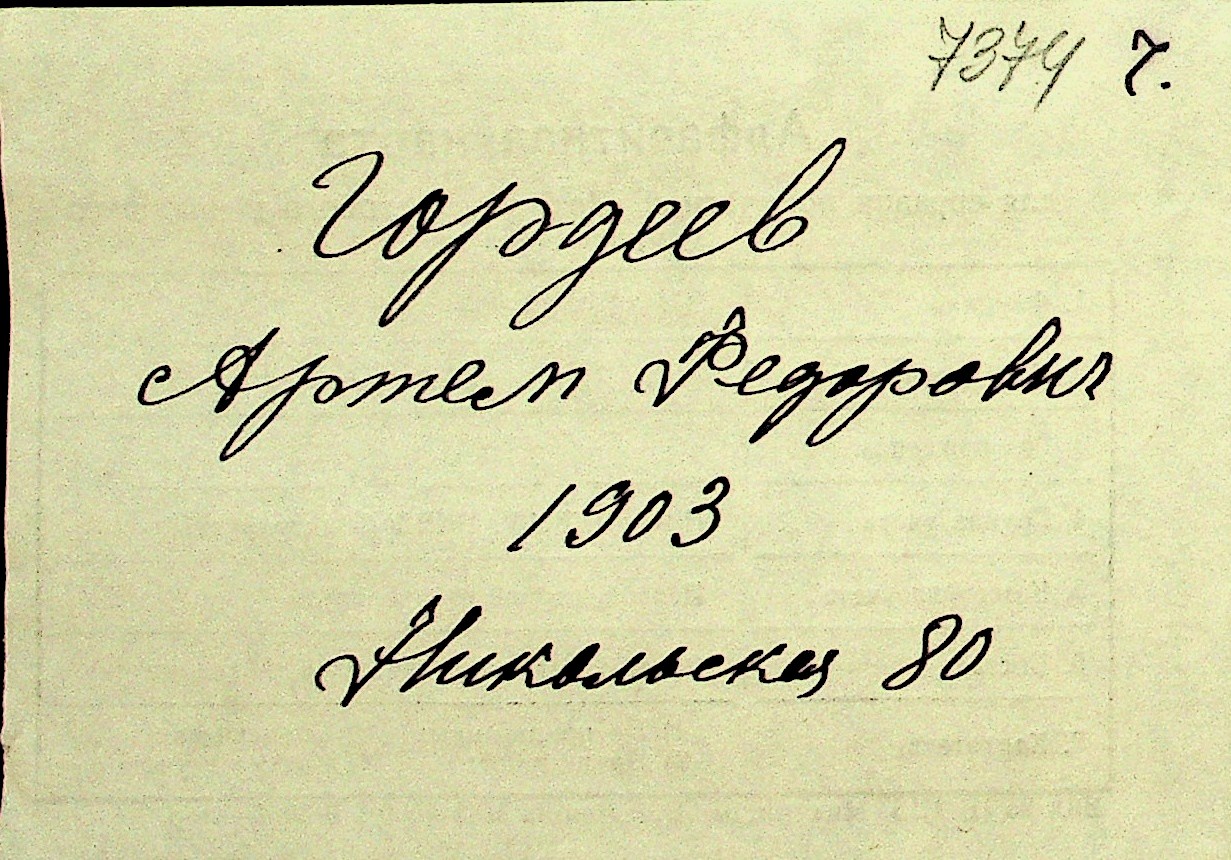 7374 7.
Гордеев
Артем Федорович
1903
Никольская 80